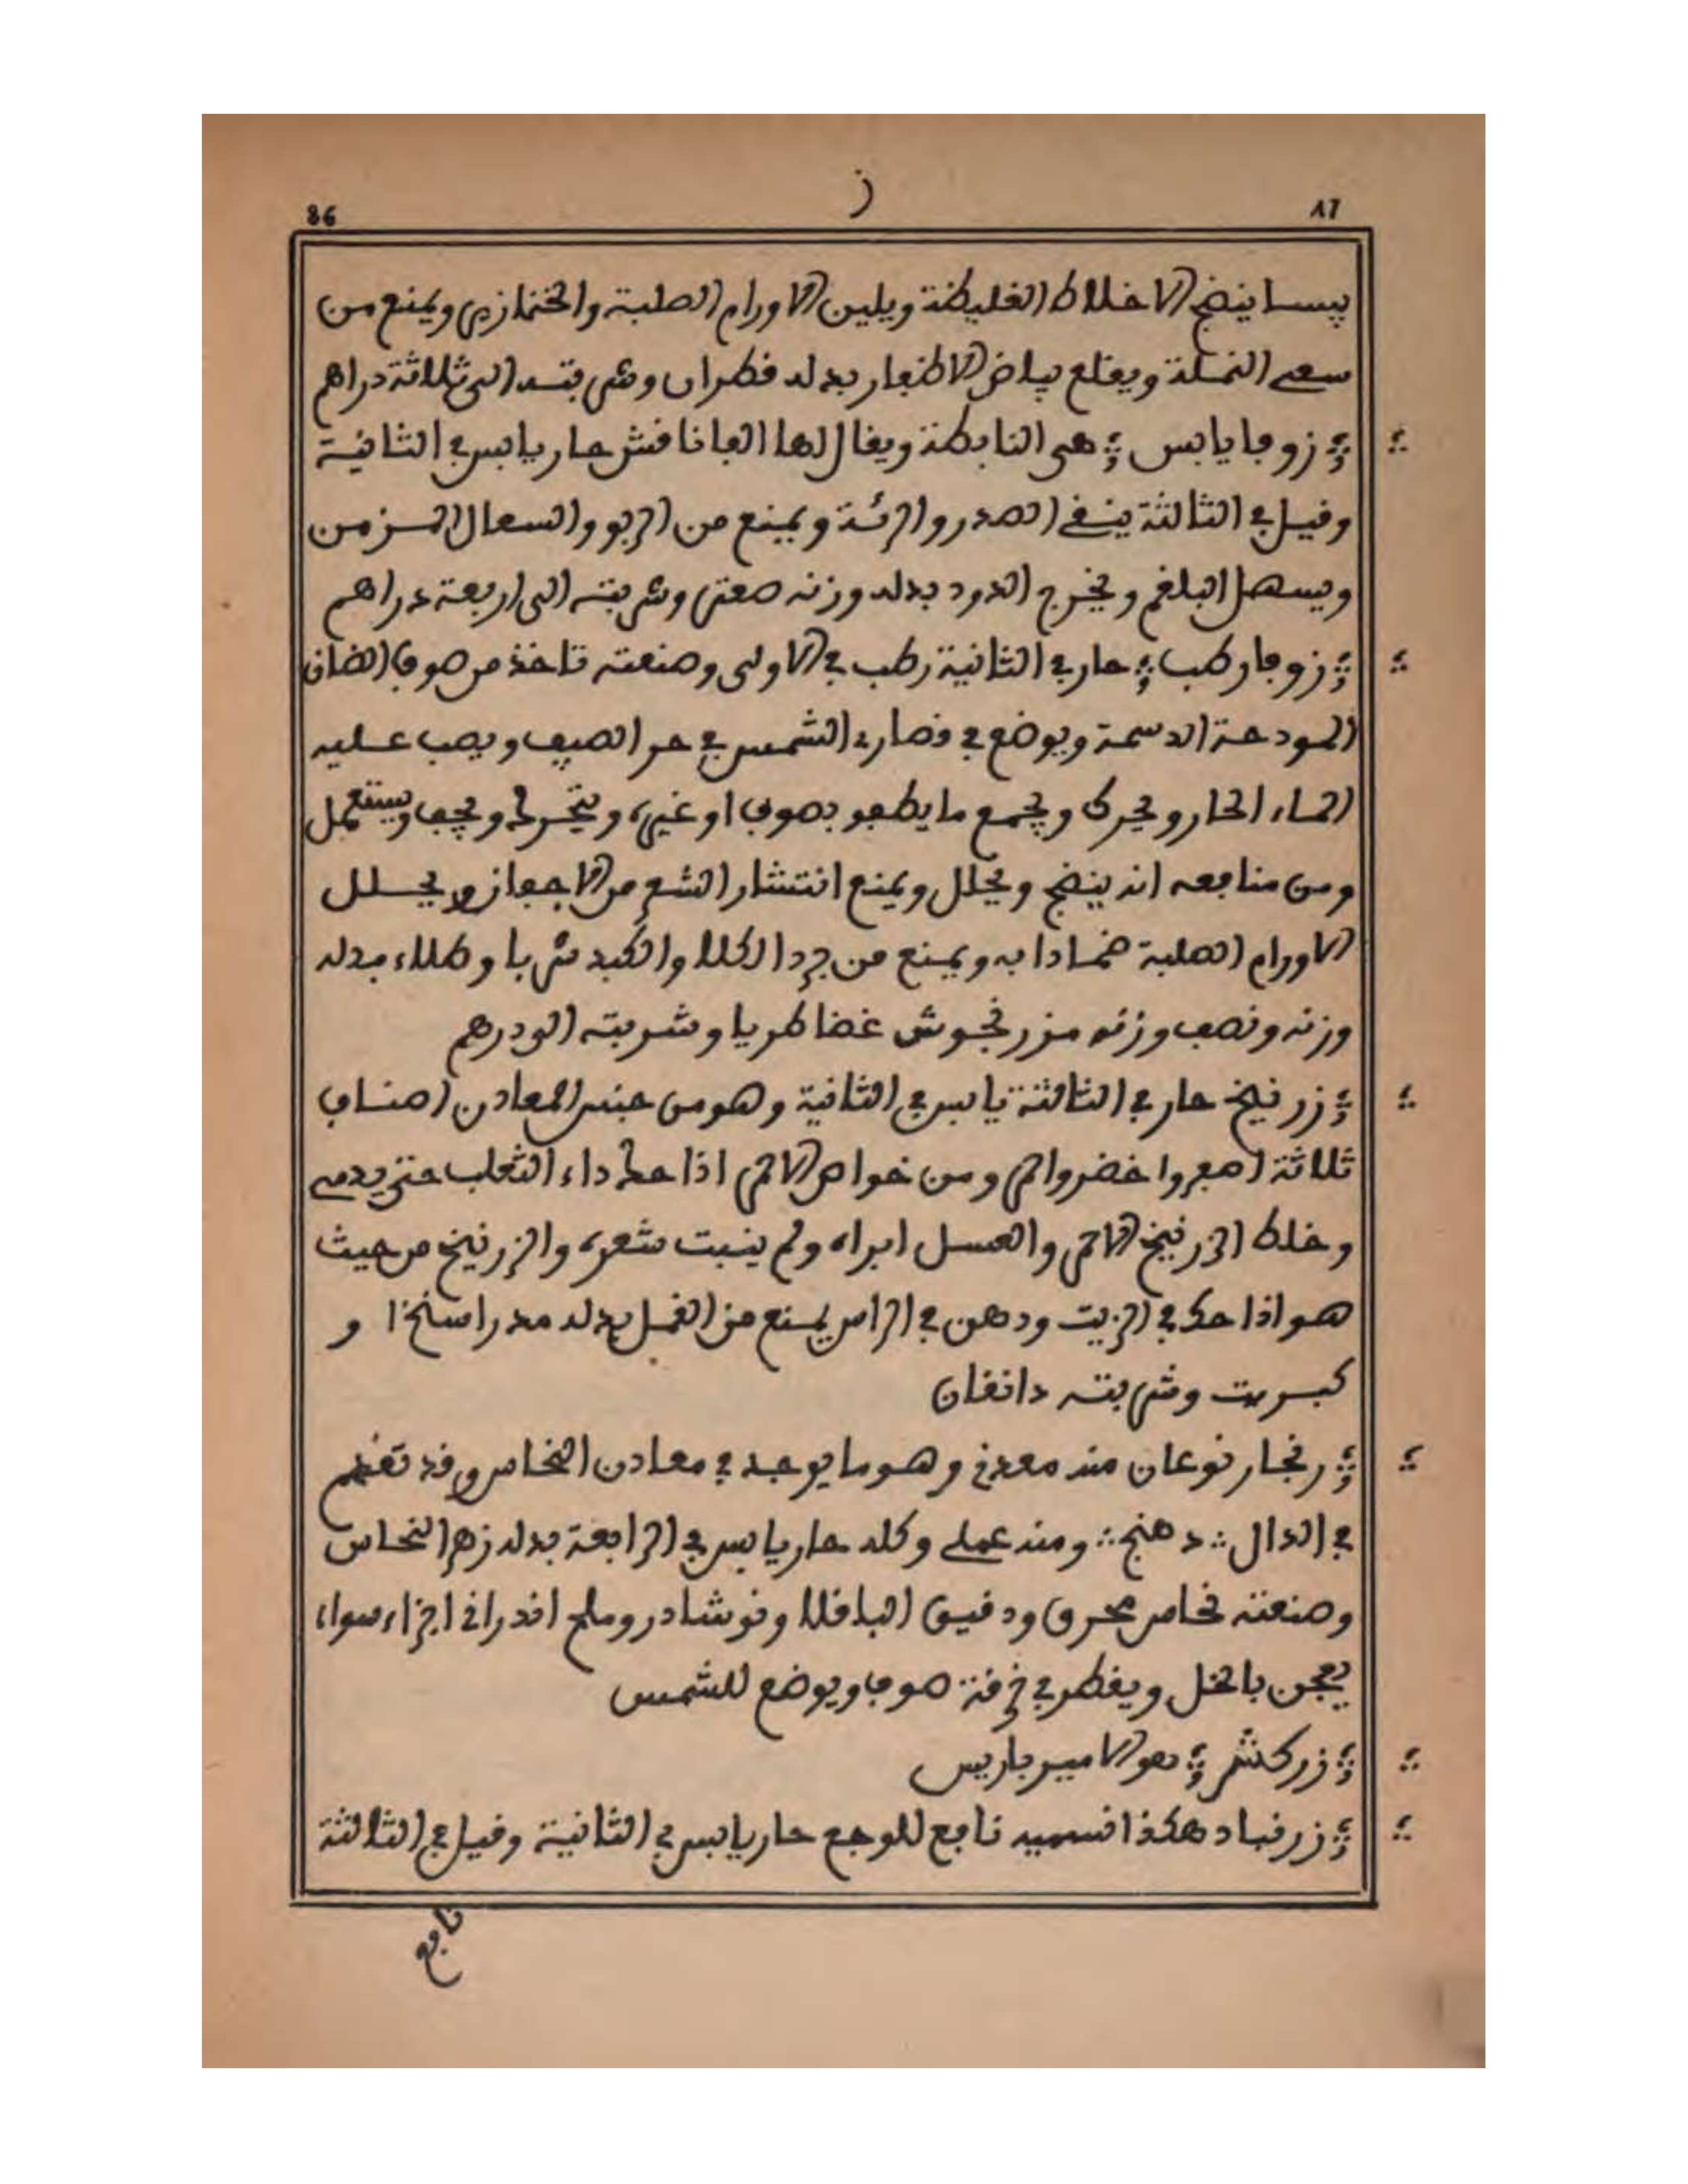 86 ز ٨٦
يبسا ينضج الاخلاط الغليظة ويلين الاورام الصلبة والخنازير ويمنع من
سعي النملة ويقلع بياض الاظفار بدله قطران وشربته الى ثلاثة دراهم
؞ زوفا يابس ؞ هي النابطة ويقال لها الغافافش حار يابس في الثانية
وقيل في الثالثة ينقي الصدر والرئة ويمنع من الربو والسعال المزمن
ويسهل البلغم ويخرج الدود بدله وزنه صعتر وشربته الى اربعة دراهم
؞ زوفا رطب ؞ حار في الثانية رطب في الاولى وصنعته تاخذ من صوف الضان
المودحة الدسمة ويوضع في قصار في الشمس في حر الصيف ويصب عليه
الماء الحار ويحرك ويجمع ما يطفو بصوف او غيره ويجفف ويستعمل
ومن منافعه انه ينضج ويحلل ويمنع انتشار الشعر من الاجفان ويحلل
الاورام الصلبة ضمادا به ويمنع من برد الكلا والكبد شربا وطلاء بدله
وزنه ونصف وزنه مزرنجوش غضا طريا وشربته الى درهم
؞ زرنيخ حار في الثالثة يابس في الثانية وهو من جنس المعادن اصناف
ثلاثة اصفر واخضر واحمر ومن خواص الاحمر اذا حك داء الثعلب حتى يدمي
وخلط الزرنيخ الاحمر والعسل ابراه ولم ينبت شعره والزرنيخ من حيث
هو اذا حك في الزيت ودهن في الراس يمنع من القمل بدله مدراسنخا و
كبريت وشربته دانقان
؞ زنجار نوعان منه معدني وهو ما يوجد في معادن النحاس وقد تقدم
في الدال ؞ دهنج ؞ ومنه عملي وكله حار يابس في الرابعة بدله زهر النحاس
وصنعته نحاس محرق ودقيق الباقلا ونوشادر وملح اندراني اجزاء سواء
يعجن بالخل ويقطر في خرقة صوف ويوضع للشمس
؞ زركش ؞ هو الامير باريس
؞ زرنباد هكذا نسميه نافع للوجع حار يابس في الثانية وقيل في الثالثة
نافع